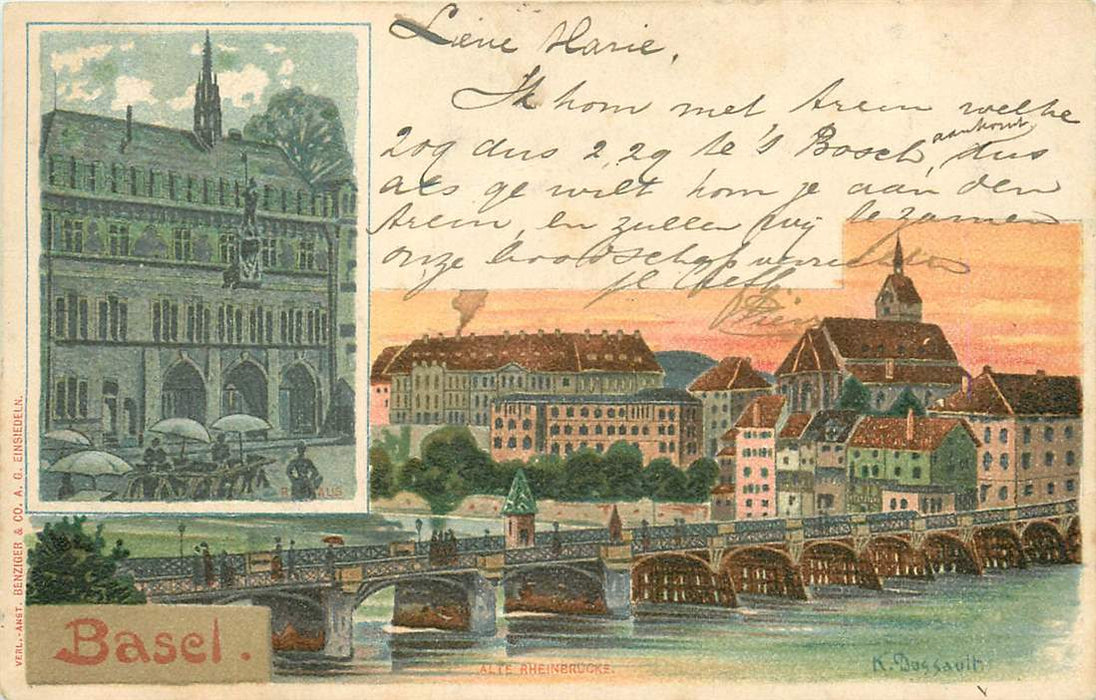 Lieve Marie,
Ik kom met trein welke
2,09 dus 2,29 te 's Bosch, aankomt dus
als ge wilt kom je aan den
trein, en zullen wij te zamen
onze boodschap verrichten
je liefh
RATHAUS
VERL.-ANST. BENZIGER & CO. A. G. EINSIEDELN.
Basel.
ALTE RHEINBRÜCKE.